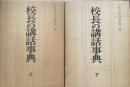 校長の講話事典
上
校長の講話事典
下